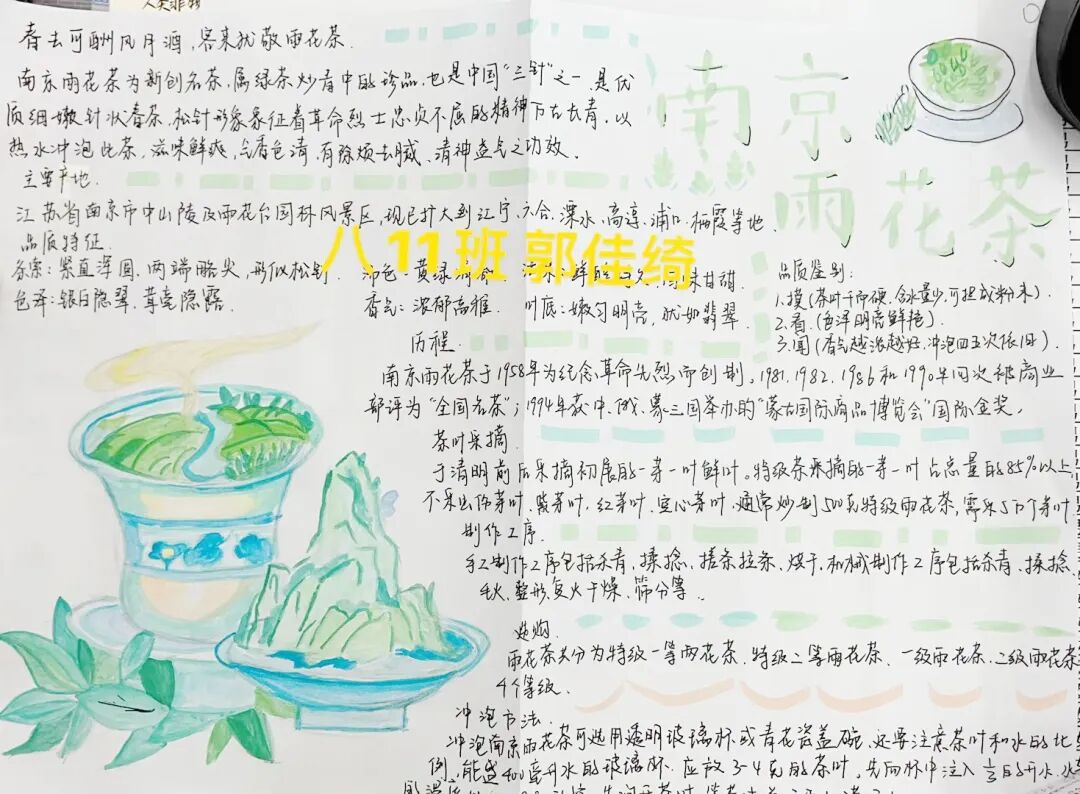 人类非物
春去可酬风月酒,客来犹敬雨花茶.
南京雨花茶为新创名茶,属绿茶炒青中的珍品,也是中国“三针”之一,是优
质细嫩针状春茶,松针形象象征着革命烈士忠贞不屈的精神万古长青,以
热水冲泡此茶,滋味鲜爽,气香色清,有除烦去腻、清神益气之功效.
南京
雨花茶
主要产地.
江苏省南京市中山陵及雨花台园林风景区,现已扩大到江宁、六合、溧水、高淳、浦口、栖霞等地
八11班 郭佳绮
品质特征.
条索:紧直浑圆,两端略尖,形似松针
色泽:银白隐翠,茸毫隐露.
汤色:黄绿
香气:浓郁高雅.
回味甘甜
叶底:嫩匀明亮,犹如翡翠.
品质鉴别:
1.摸(茶叶干而硬,含水量少,可捏成粉末).
2.看.(色泽明亮鲜艳).
3.闻(香气越浓越好,冲泡四五次依旧).
历程.
南京雨花茶于1958年为纪念革命先烈而创制。1981、1982、1986和1990年四次被商业
部评为“全国名茶”;1994年获中、俄、蒙三国举办的“蒙古国际商品博览会”国际金奖.
茶叶采摘.
于清明前后采摘初展的一芽一叶鲜叶。特级茶采摘的一芽一叶占总量的85%以上
不采虫伤芽叶、紫芽叶、红芽叶、空心芽叶.通常炒制500克特级雨花茶,需采5万个芽叶
制作工序.
手工制作工序包括杀青、揉捻、搓条拉条、烘干,机械制作工序包括杀青、揉捻、
毛火、整形、复火干燥、筛分等.
选购.
雨花茶共分为特级一等雨花茶、特级二等雨花茶、一级雨花茶、二级雨花茶
4个等级.
冲泡方法.
冲泡南京雨花茶可选用透明玻璃杯或青花瓷盖碗,还要注意茶叶和水的比
例,能盛400毫升水的玻璃杯,应放3-4克的茶叶,先向杯中注入1/3的开水,水